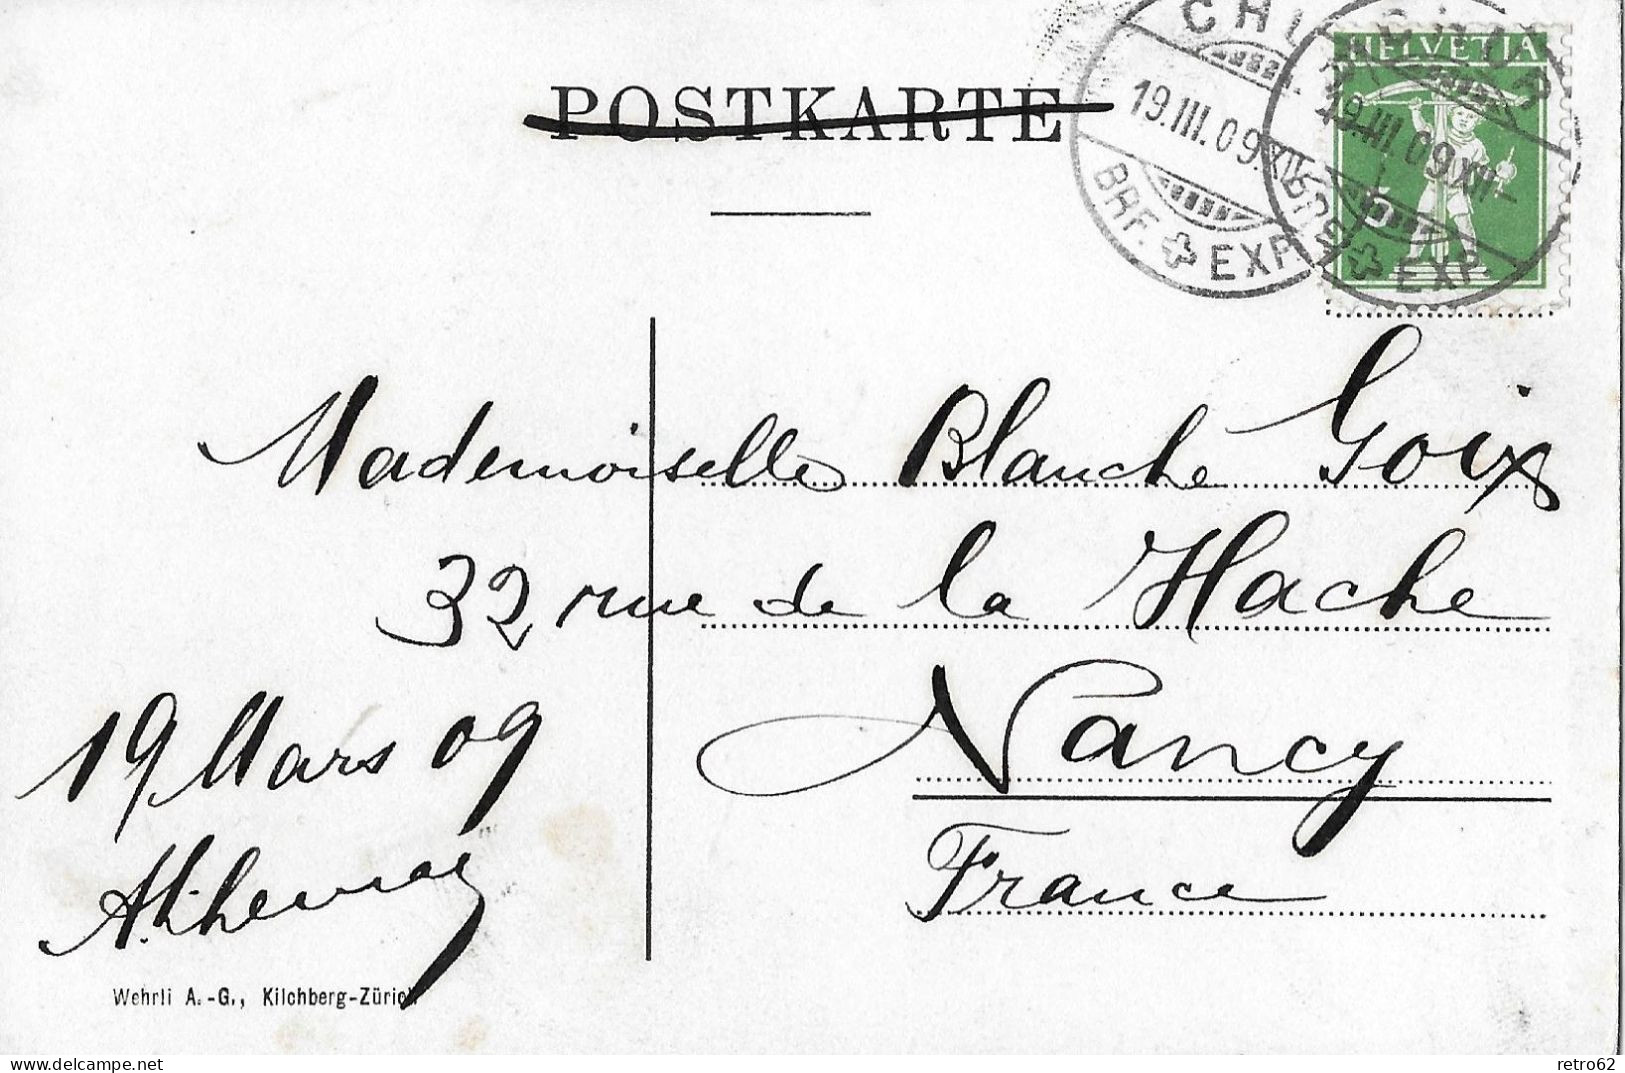 POSTKARTE
CHUR
19.III.09.XII
BRF. EXP.
CHUR
19.III.09.XII-
BRF. EXP.
HELVETIA
5
Mademoiselle Blanche Goix
32 rue de la Hache
Nancy
France
19 Mars 09
Wehrli A.-G., Kilchberg-Zürich
retro62